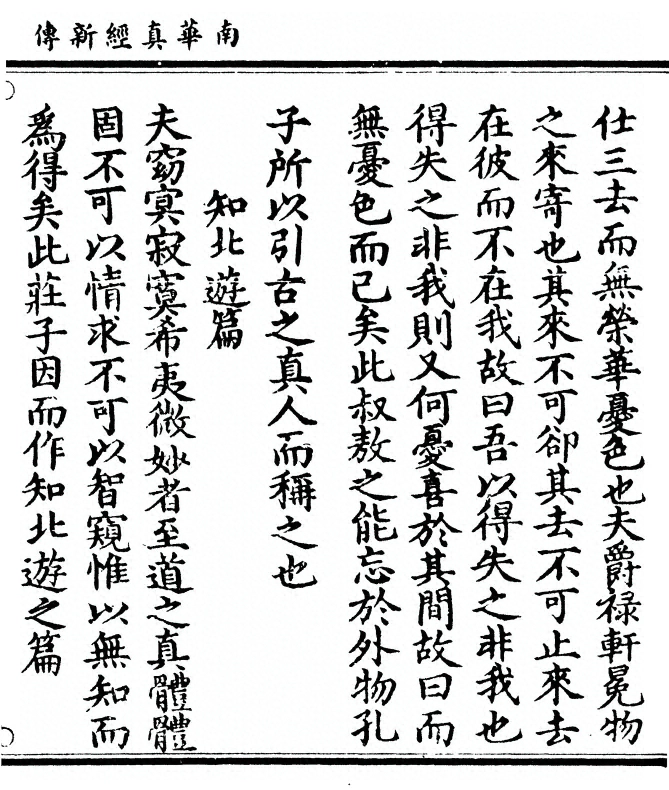 南華真經新傳
仕三去而無榮華憂色也夫爵祿軒冕物
之來寄也其來不可卻其去不可止來去
在彼而不在我故曰吾以得失之非我也
得失之非我則又何憂喜於其間故曰而
無憂色而已矣此叔敖之能忘於外物孔
子所以引古之真人而稱之也
知北遊篇
夫窈冥寂寞希夷微妙者至道之真體體
固不可以情求不可以智窺惟以無知而
爲得矣此莊子因而作知北遊之篇